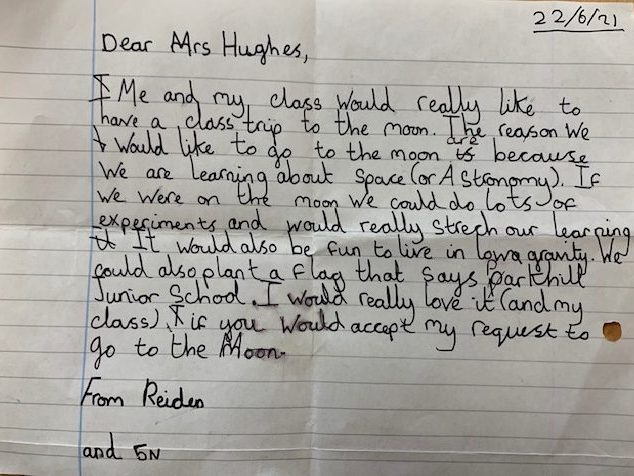 22/6/21
Dear Mrs Hughes,
Me and my class would really like to
have a class trip to the moon. The reason we
would like to go to the moon is because
are
we are learning about Space (or Astronomy). If
we were on the moon we could do lots of
experiments and would really strech our learning
It would also be fun to live in low gravity. We
could also plant a flag that says parkhill
Junior School. I would really love it (and my
class) if you would accept my request to
go to the Moon.
From Reiden
and 5N